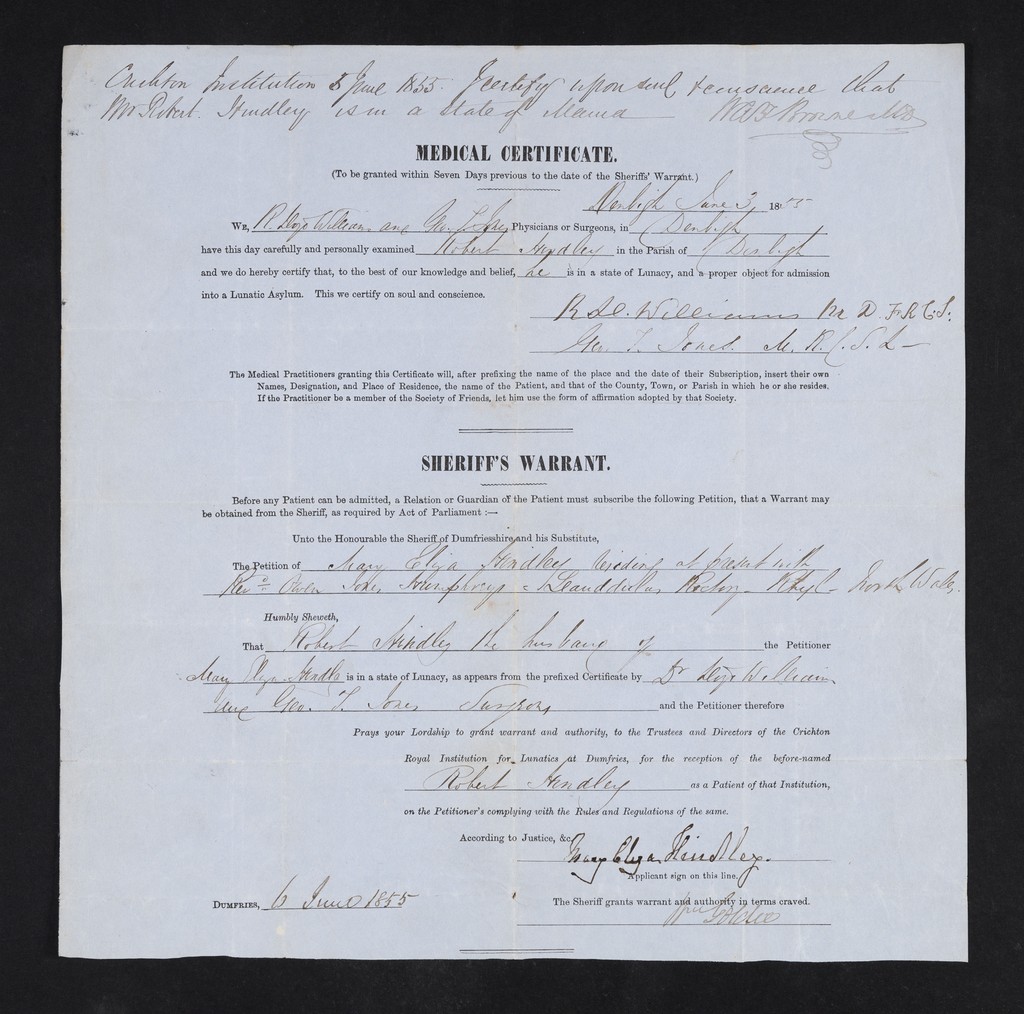 Crichton Institution 5 June 1855. I certify upon soul & conscience that
Mr Robert Hindley is in a state of Mania W A F Browne MD
MEDICAL CERTIFICATE.
(To be granted within Seven Days previous to the date of the Sheriffs' Warrant.)
Denbigh June 3, 1855
We, R. Lloyd Williams and Geo. T. Jones Physicians or Surgeons, in Denbigh
have this day carefully and personally examined Robert Hindley in the Parish of Denbigh
and we do hereby certify that, to the best of our knowledge and belief, he is in a state of Lunacy, and a proper object for admission
into a Lunatic Asylum. This we certify on soul and conscience.
R Ll. Williams M D. F.R.C.S.
Geo. T. Jones. M. R. C. S. L
The Medical Practitioners granting this Certificate will, after prefixing the name of the place and the date of their Subscription, insert their own
Names, Designation, and Place of Residence, the name of the Patient, and that of the County, Town, or Parish in which he or she resides.
If the Practitioner be a member of the Society of Friends, let him use the form of affirmation adopted by that Society.
SHERIFF'S WARRANT.
Before any Patient can be admitted, a Relation or Guardian of the Patient must subscribe the following Petition, that a Warrant may
be obtained from the Sheriff, as required by Act of Parliament :—
Unto the Honourable the Sheriff of Dumfriesshire and his Substitute,
The Petition of Mary Eliza Hindley residing at present with
Revd. Owen Jones Humphreys Rectory Rhyl North Wales.
Humbly Sheweth,
That Robert Hindley the husband of the Petitioner
Mary Eliza Hindley is in a state of Lunacy, as appears from the prefixed Certificate by Dr Lloyd Williams
and Geo. T. Jones Surgeons and the Petitioner therefore
Prays your Lordship to grant warrant and authority, to the Trustees and Directors of the Crichton
Royal Institution for Lunatics at Dumfries, for the reception of the before-named
Robert Hindley as a Patient of that Institution,
on the Petitioner's complying with the Rules and Regulations of the same.
According to Justice, &c.
Mary Eliza Hindley.
Applicant sign on this line.
DUMFRIES, 6 June 1855 The Sheriff grants warrant and authority in terms craved.